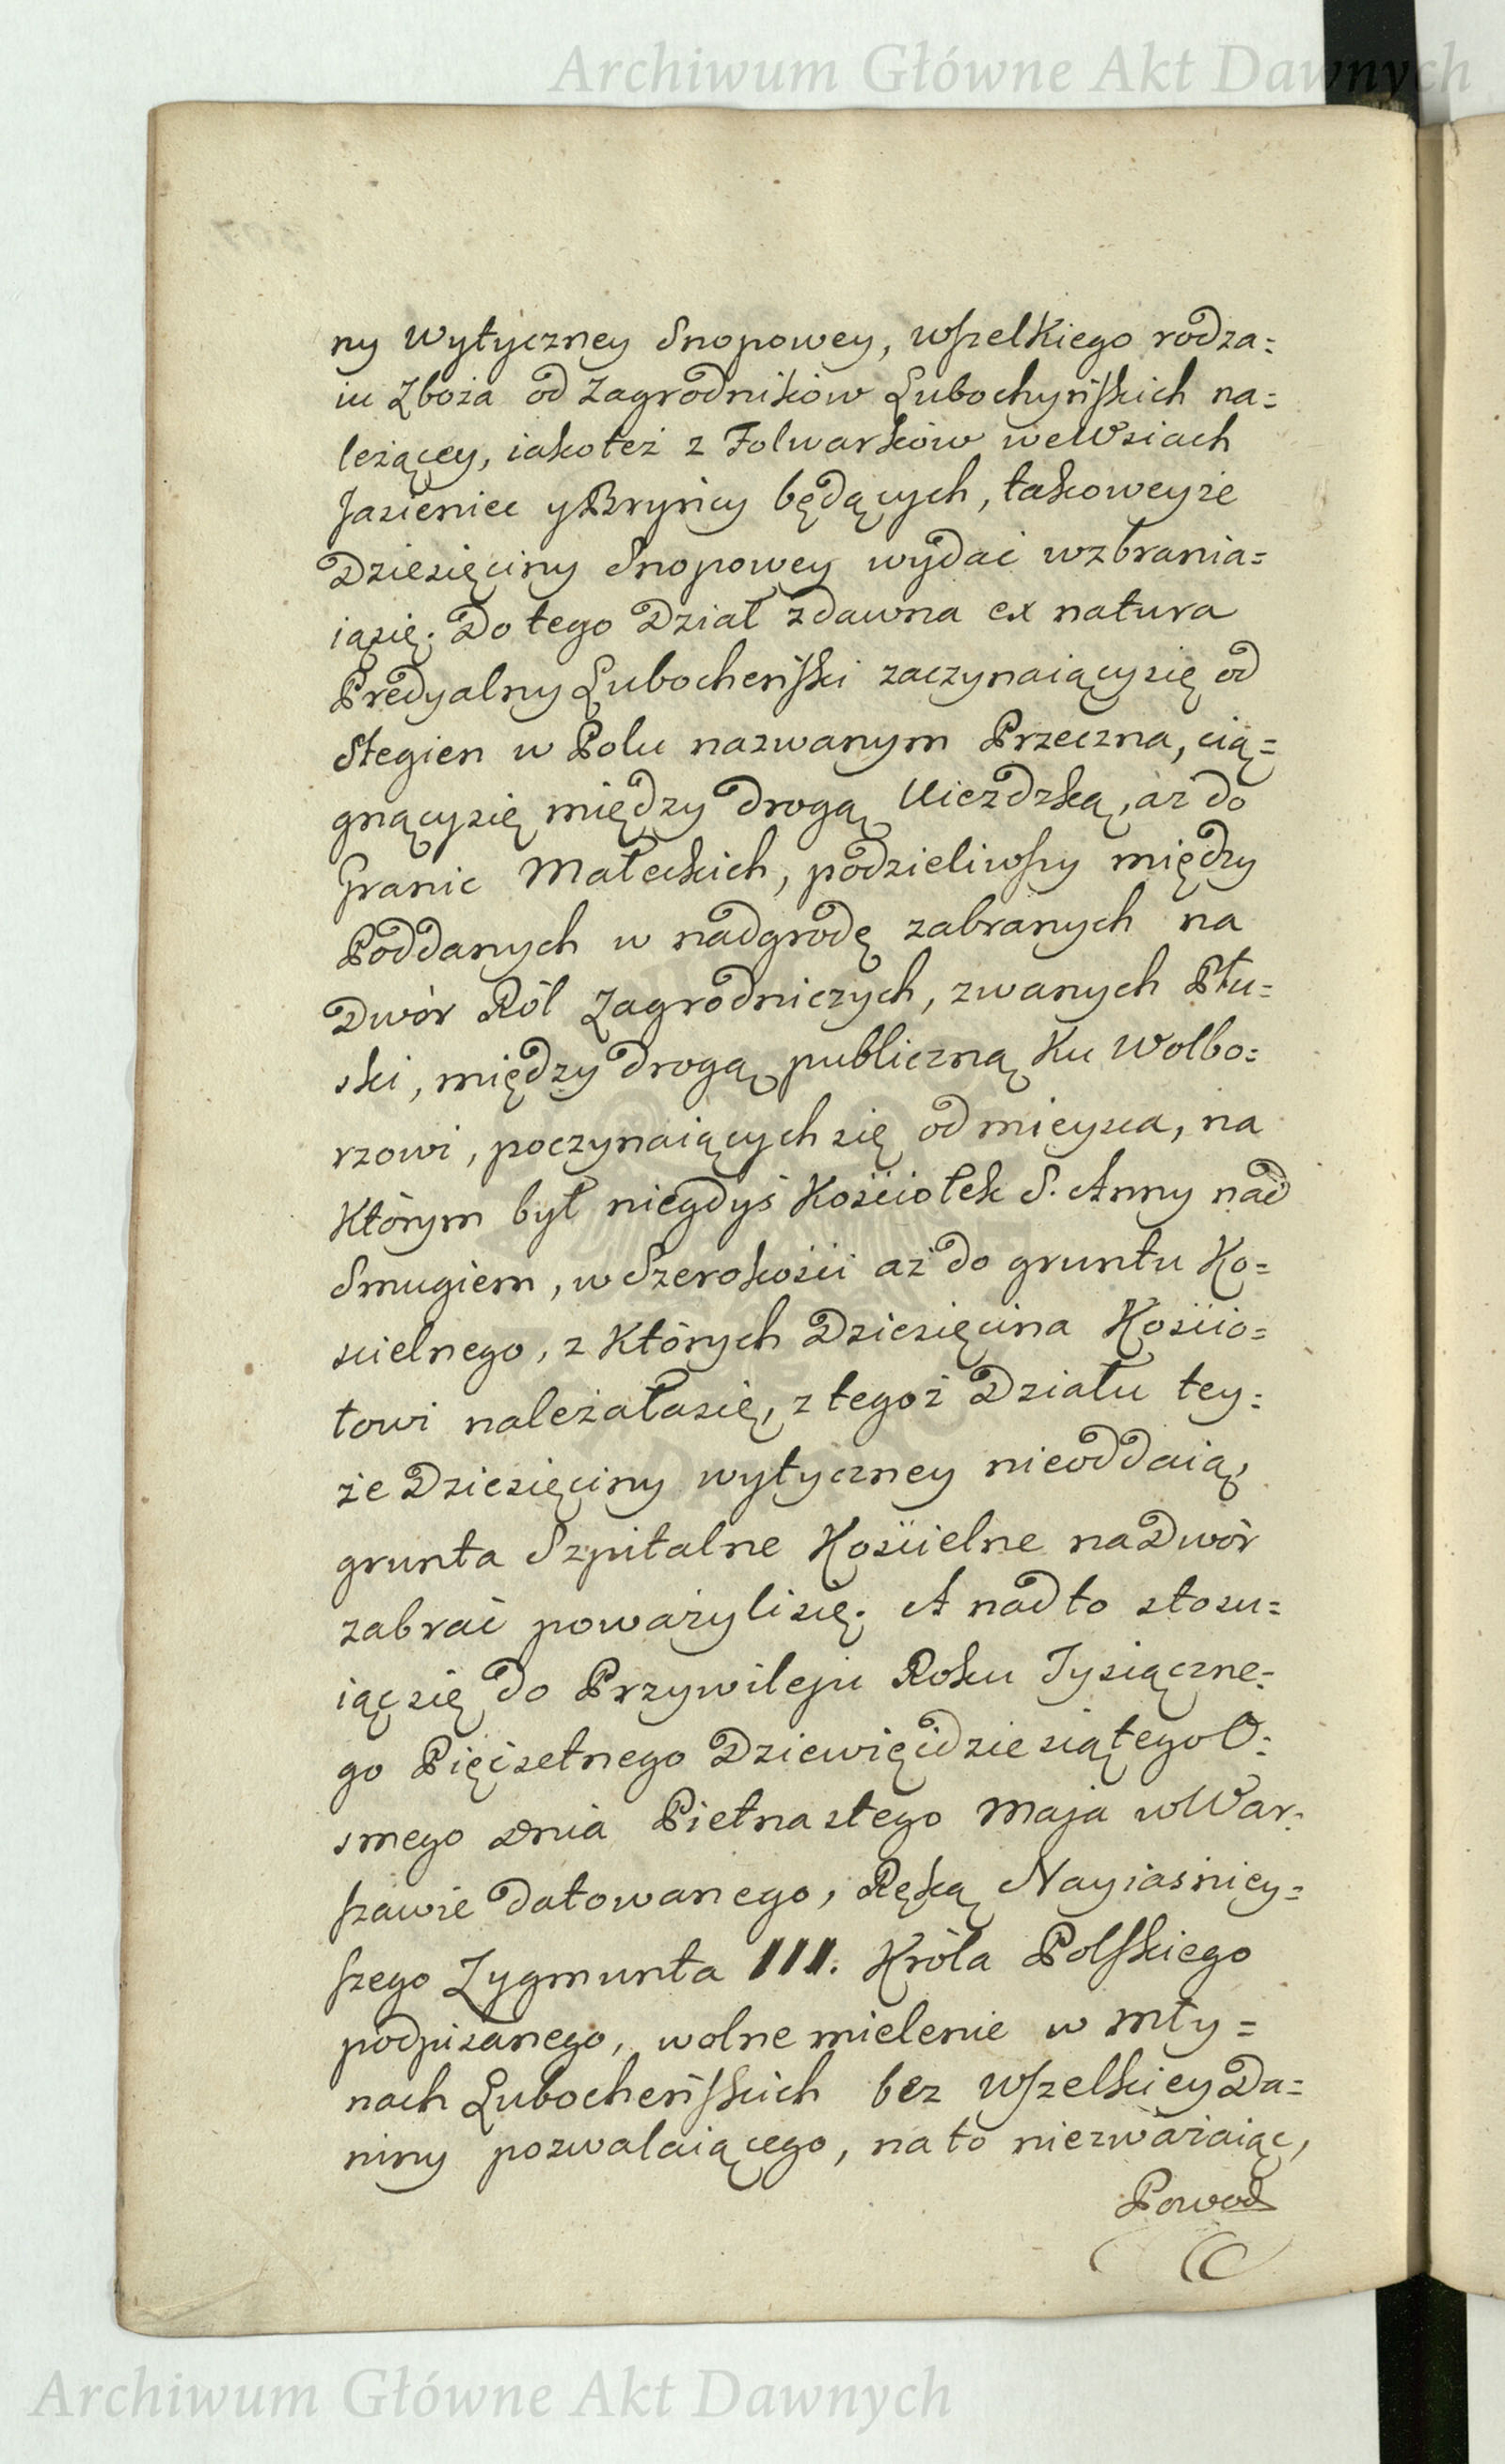 Archiwum Główne Akt Dawnych
ny wytyczney Snopowey, wszelkiego rodza=
iu Zboża od Zagrodników Lubochyńskich na=
leżącey, iakoteż z Folwarków weWsiach
Jasieniec y Brynicy będących, takoweyże
Dziesięciny Snopowey wydać wzbrania=
iąsię. Do tego Dział zdawna ex natura
Predyalny Lubocheński zaczynaiącysię od
Stegien w Polu nazwanym Przeczna, cią=
gnącysię między drogą Uiezdzką, aż do
Granic Małeckich, podzieliwszy między
Poddanych w nadgrodę zabranych na
Dwór Ról Zagrodniczych, zwanych Płu=
ski, między drogą publiczną ku Wolbo=
rzowi, poczynaiących się od mieysca, na
którym był niegdyś Kościołek S. Anny nad
Smugiem, w Szerokości aż do gruntu Ko=
scielnego, z których Dziesięcina Kościo=
łowi należałasię, z tegoż Działu tey=
że Dziesięciny wytyczney nieoddaią,
grunta Szpitalne Kościelne na Dwór
zabrać poważylisię. A nadto stosu=
iąc się do Przywileju Roku Tysiączne=
go Pięćsetnego Dziewięćdziesiątego O=
smego Dnia Pietnastego Maja w War=
szawie Datowanego, Ręką Nayiasniey=
szego Zygmunta III. Króla Polskiego
podpisanego, wolne mielenie w Mły=
nach Lubocheńskich bez wszelkiey Da=
niny pozwalaiącego, na to niezważaiąc,
Powod
Archiwum Główne Akt Dawnych